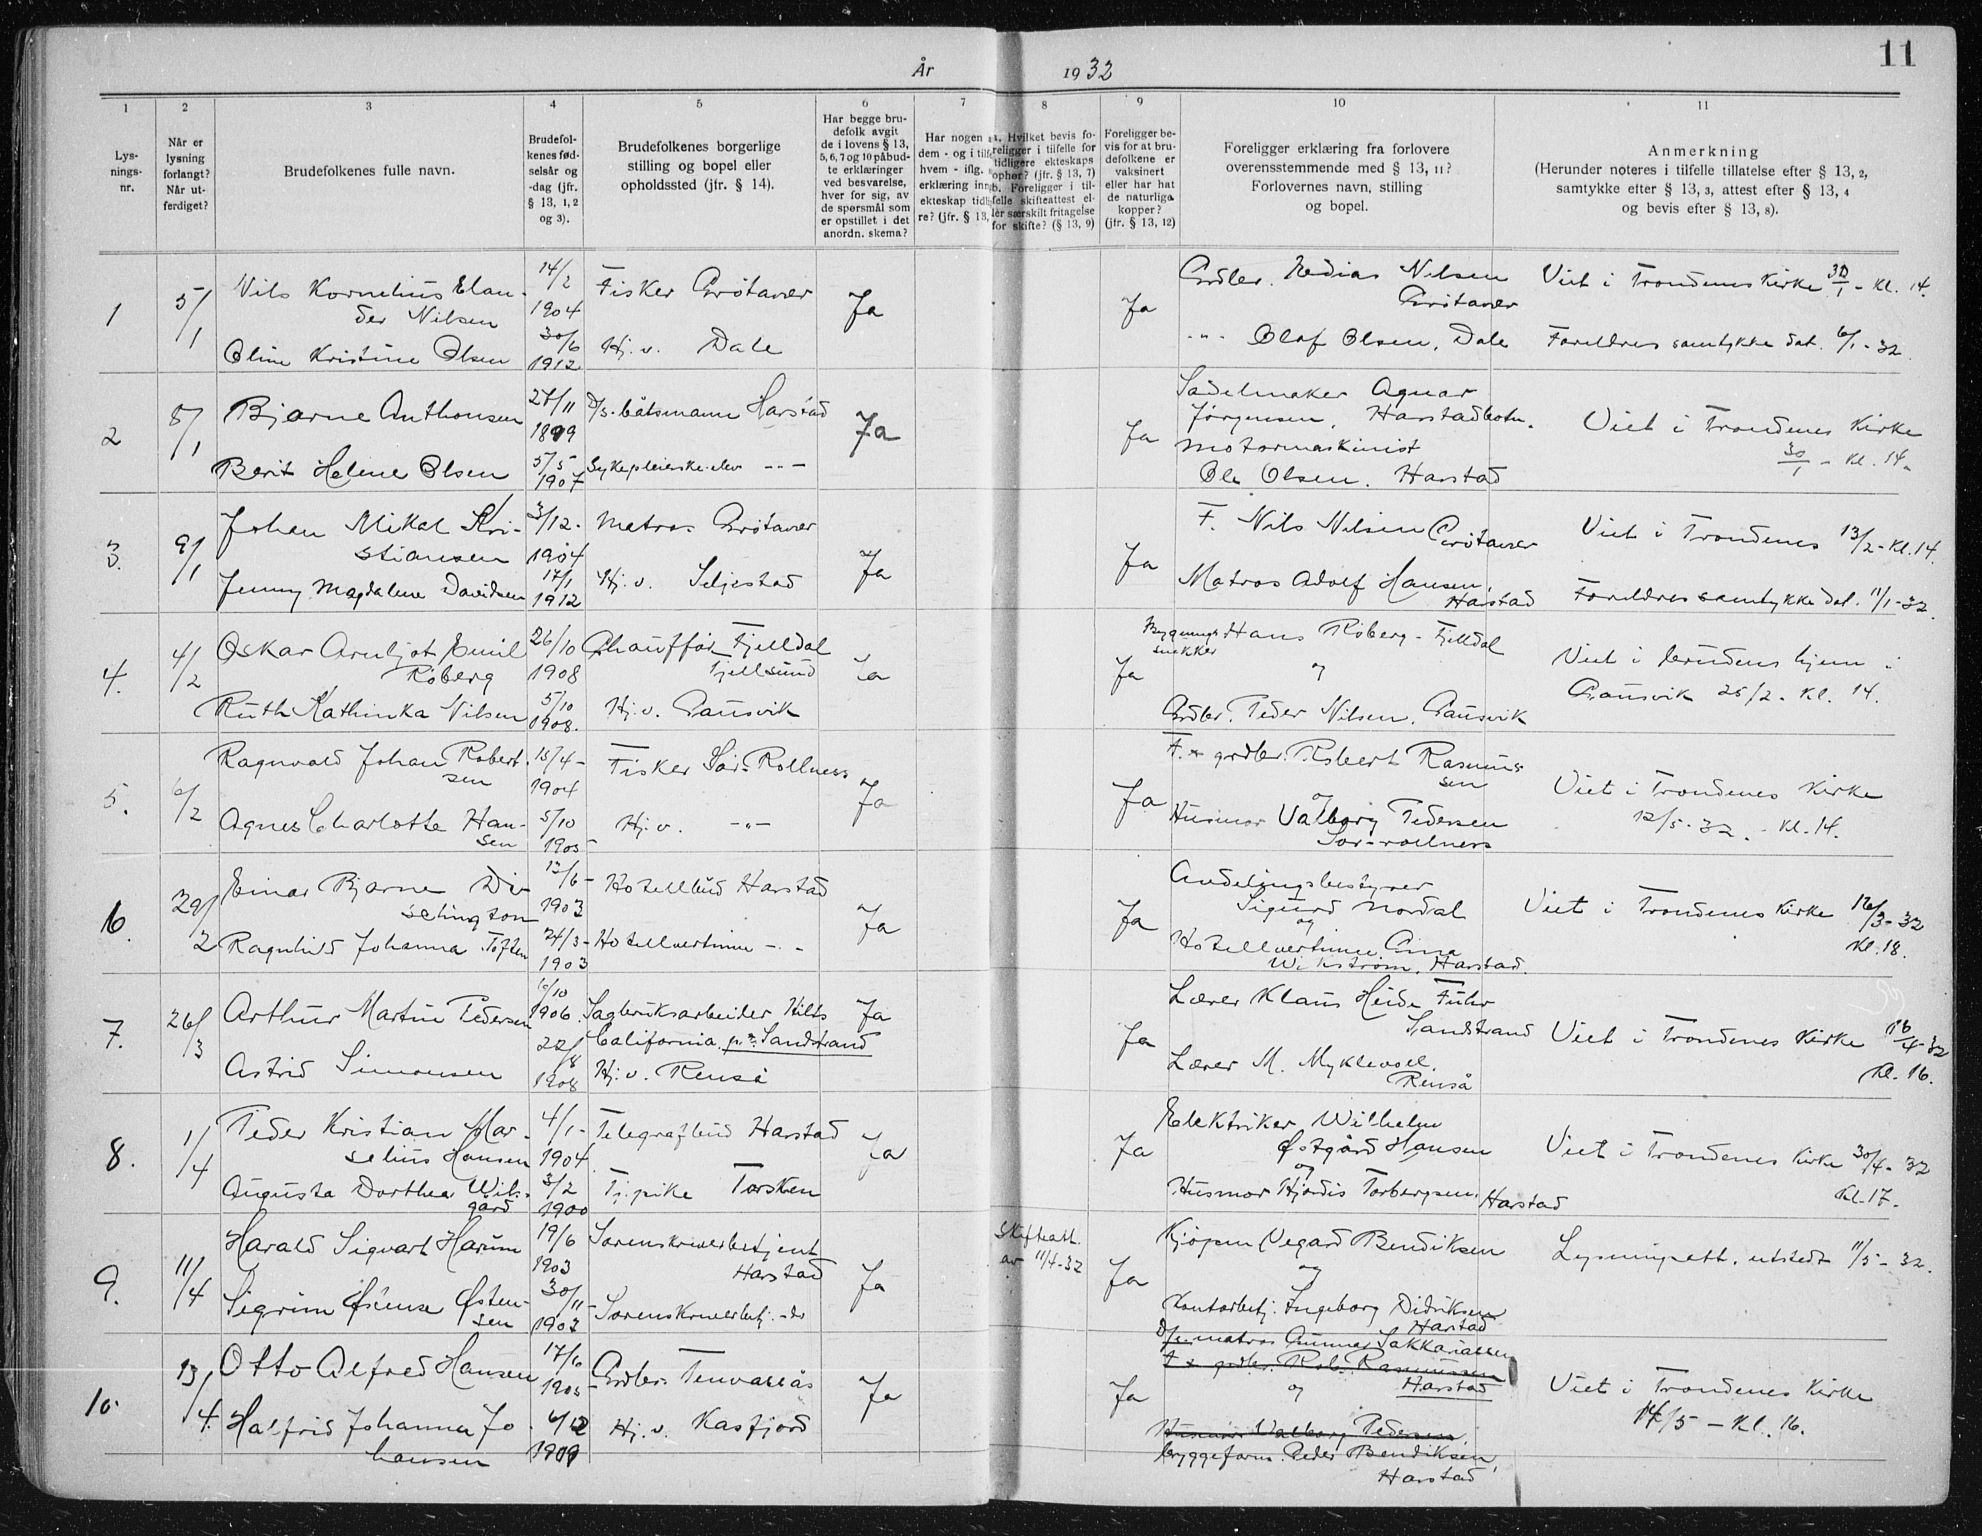 År 1932
11
1
2
3
4
5
6
7
8
9
10
11
Lys-
nings-
nr.
Når er
lysning
forlangt?
Når ut-
ferdiget?
Brudefolkenes fulle navn.
Brudefol-
kenes fød-
selsår og
-dag (jfr.
§ 13, 1, 2
og 3).
Brudefolkenes borgerlige
stilling og bopel eller
opholdssted (jfr. § 14).
Har begge bru-
defolk avgit
de i lovens § 13,
5, 6, 7 og 10 påbud-
te erklæringer
ved besvarelse,
hver for sig, av
de spørsmål som
er opstillet i det
anordn. skema?
Har nogen a
dem - og i tilfe
hvem - iflg.
erklæring inn
ekteskap tidli
re? (jfr. § 13,
a. Hvilket bevis fo-
religger i tilfelle for
tidligere ekteskaps
ophør? (jfr. § 13, 7)
b. Foreligger i til-
felle skifteattest el-
ler særskilt fritagelse
for skifte? (§ 13, 9)
Foreligger be-
vis for at bru-
defolkene er
vaksinert
eller har hat
de naturlige
kopper?
(jfr. § 13, 12)
Foreligger erklæring fra forlovere
overensstemmende med § 13, 11?
Forlovernes navn, stilling
og bopel.
Anmerkning
(Herunder noteres i tilfelle tillatelse efter § 13, 2,
samtykke efter § 13, 3, attest efter § 13, 4
og bevis efter § 13, 8).
1 5/1 Nils Kornelius Elan-
der Nilsen 14/2 1904 Fisker Grøtavær Ja Ja Grdbr. Nilsen
Grøtavær Viet i Trondenes Kirke 30/1 - Kl. 14.
Oline Kristine Olsen 30/6 1912 Hj. v. Dale -"- Olof Olsen, Dale Foreldres samtykke dat. 6/1-32.
2 8/1 Bjarne Anthonsen 27/11 1899 D/s. båtsmann Harstad Ja Ja Sadelmaker Agnar
Jørgensen, Harstadbotn. Viet i Trondenes Kirke
30/1 - Kl. 14.
Berit Helene Olsen 5/5 1907 Sykepleierske-elev -"- Motormaskinist
Ole Olsen. Harstad
3. 9/1 Johan Mikal Kri-
stiansen 3/12. 1904 Matros Grøtavær Ja Ja F. Nils Nilsen Grøtavær Viet i Trondenes 13/2 - Kl. 14.
Jenny Magdalene Davidsen 17/1 1912 Hj. v. Seljestad Matros Adolf Hansen,
Harstad Foreldres samtykke dat. 11/1-32.
4. 4/2 Oskar Arnljot Emil
Roberg 26/10 1908 Chauffør Fjelldal
Fjellsund Ja Ja Bygnings
snekker Hans Roberg - Fjelldal
og Viet i brudens hjem i
Gausvik 25/2 - Kl. 14.
Ruth Kathinka Nilsen 5/10 1908. Hj. v. Gausvik Grdbr. Peder Nilsen, Gausvik
5. 6/2 Ragnvald Johan Robert-
sen 15/4 - 1904 Fisker Sør-Rollnes Ja Ja F. & grdbr. Robert Rasmus-
sen
og Viet i Trondenes Kirke
12/5-32. - Kl. 14.
Agnes Charlotte Han-
sen 5/10 1905 Hj. v. -"- Husmor Valborg Pedersen
Sør-rollnes
6. 29/2 Einar Bjarne Di-
setington 13/6 - 1903 Hotellbud Harstad Ja Ja Avdelingsbestyrer
Sigurd Nordal
og Viet i Trondenes Kirke 12/3-32
Kl. 18.
Ragnhild Johanna Toften 24/3 - 1903 Hotellvertinne -"- Hotellvertinne Anna
Wikstrøm, Harstad.
7. 26/3 Arthur Martin Pedersen 10/10 1906. Sagbruksarbeider Hilts
California p.t. Sandstrand Ja Ja Lærer Klaus Heide Fuhr
Sandstrand Viet i Trondenes Kirke 16/4-32
Kl. 16.
Astrid Simonsen 22/8 1908 Hj. v. Renså Lærer M. Myklevoll.
Renså
8. 1/4 Peder Kristian Mar-
selius Hansen 4/1 - 1904. Telegrafbud Harstad Ja Ja Elektriker Wilhelm
Østgård Hansen
og Viet i Trondenes Kirke 30/4-32
Kl. 17.
Augusta Dorthea Wils-
gård 3/2 1900 Tj. pike Torsken Husmor Hjørdis Torbergsen, Harstad
9. 11/4 Harald Sigvart Harum 19/6 1903 Sorenskriverbetjent
Harstad Ja Skifteatt.
av 11/4-32 Ja Kjøpm Vegard Bendiksen
og Lysningsatt. utstedt 11/5-32.
Sigrun Østen-
sen 30/11 - 1902 Sorenskriverbetj. -"- Kontorbetj. Ingeborg Didriksen
Harstad
10. 13/4. Otto Alfred Hansen 17/6 1905 - Grdbr. Tennvassås Ja Ja D/s. matros Gunnar Sakkariassen
F & grdbr. Rob. Rasmussen
Harstad
og Viet i Trondenes Kirke
14/5 - Kl. 16.
Halfrid Johanna Jo-
hansen 6/12 1909 Hj. v. Kasfjord Husmor Valborg Pedersen
bryggeform. Peder Bendiksen,
Harstad